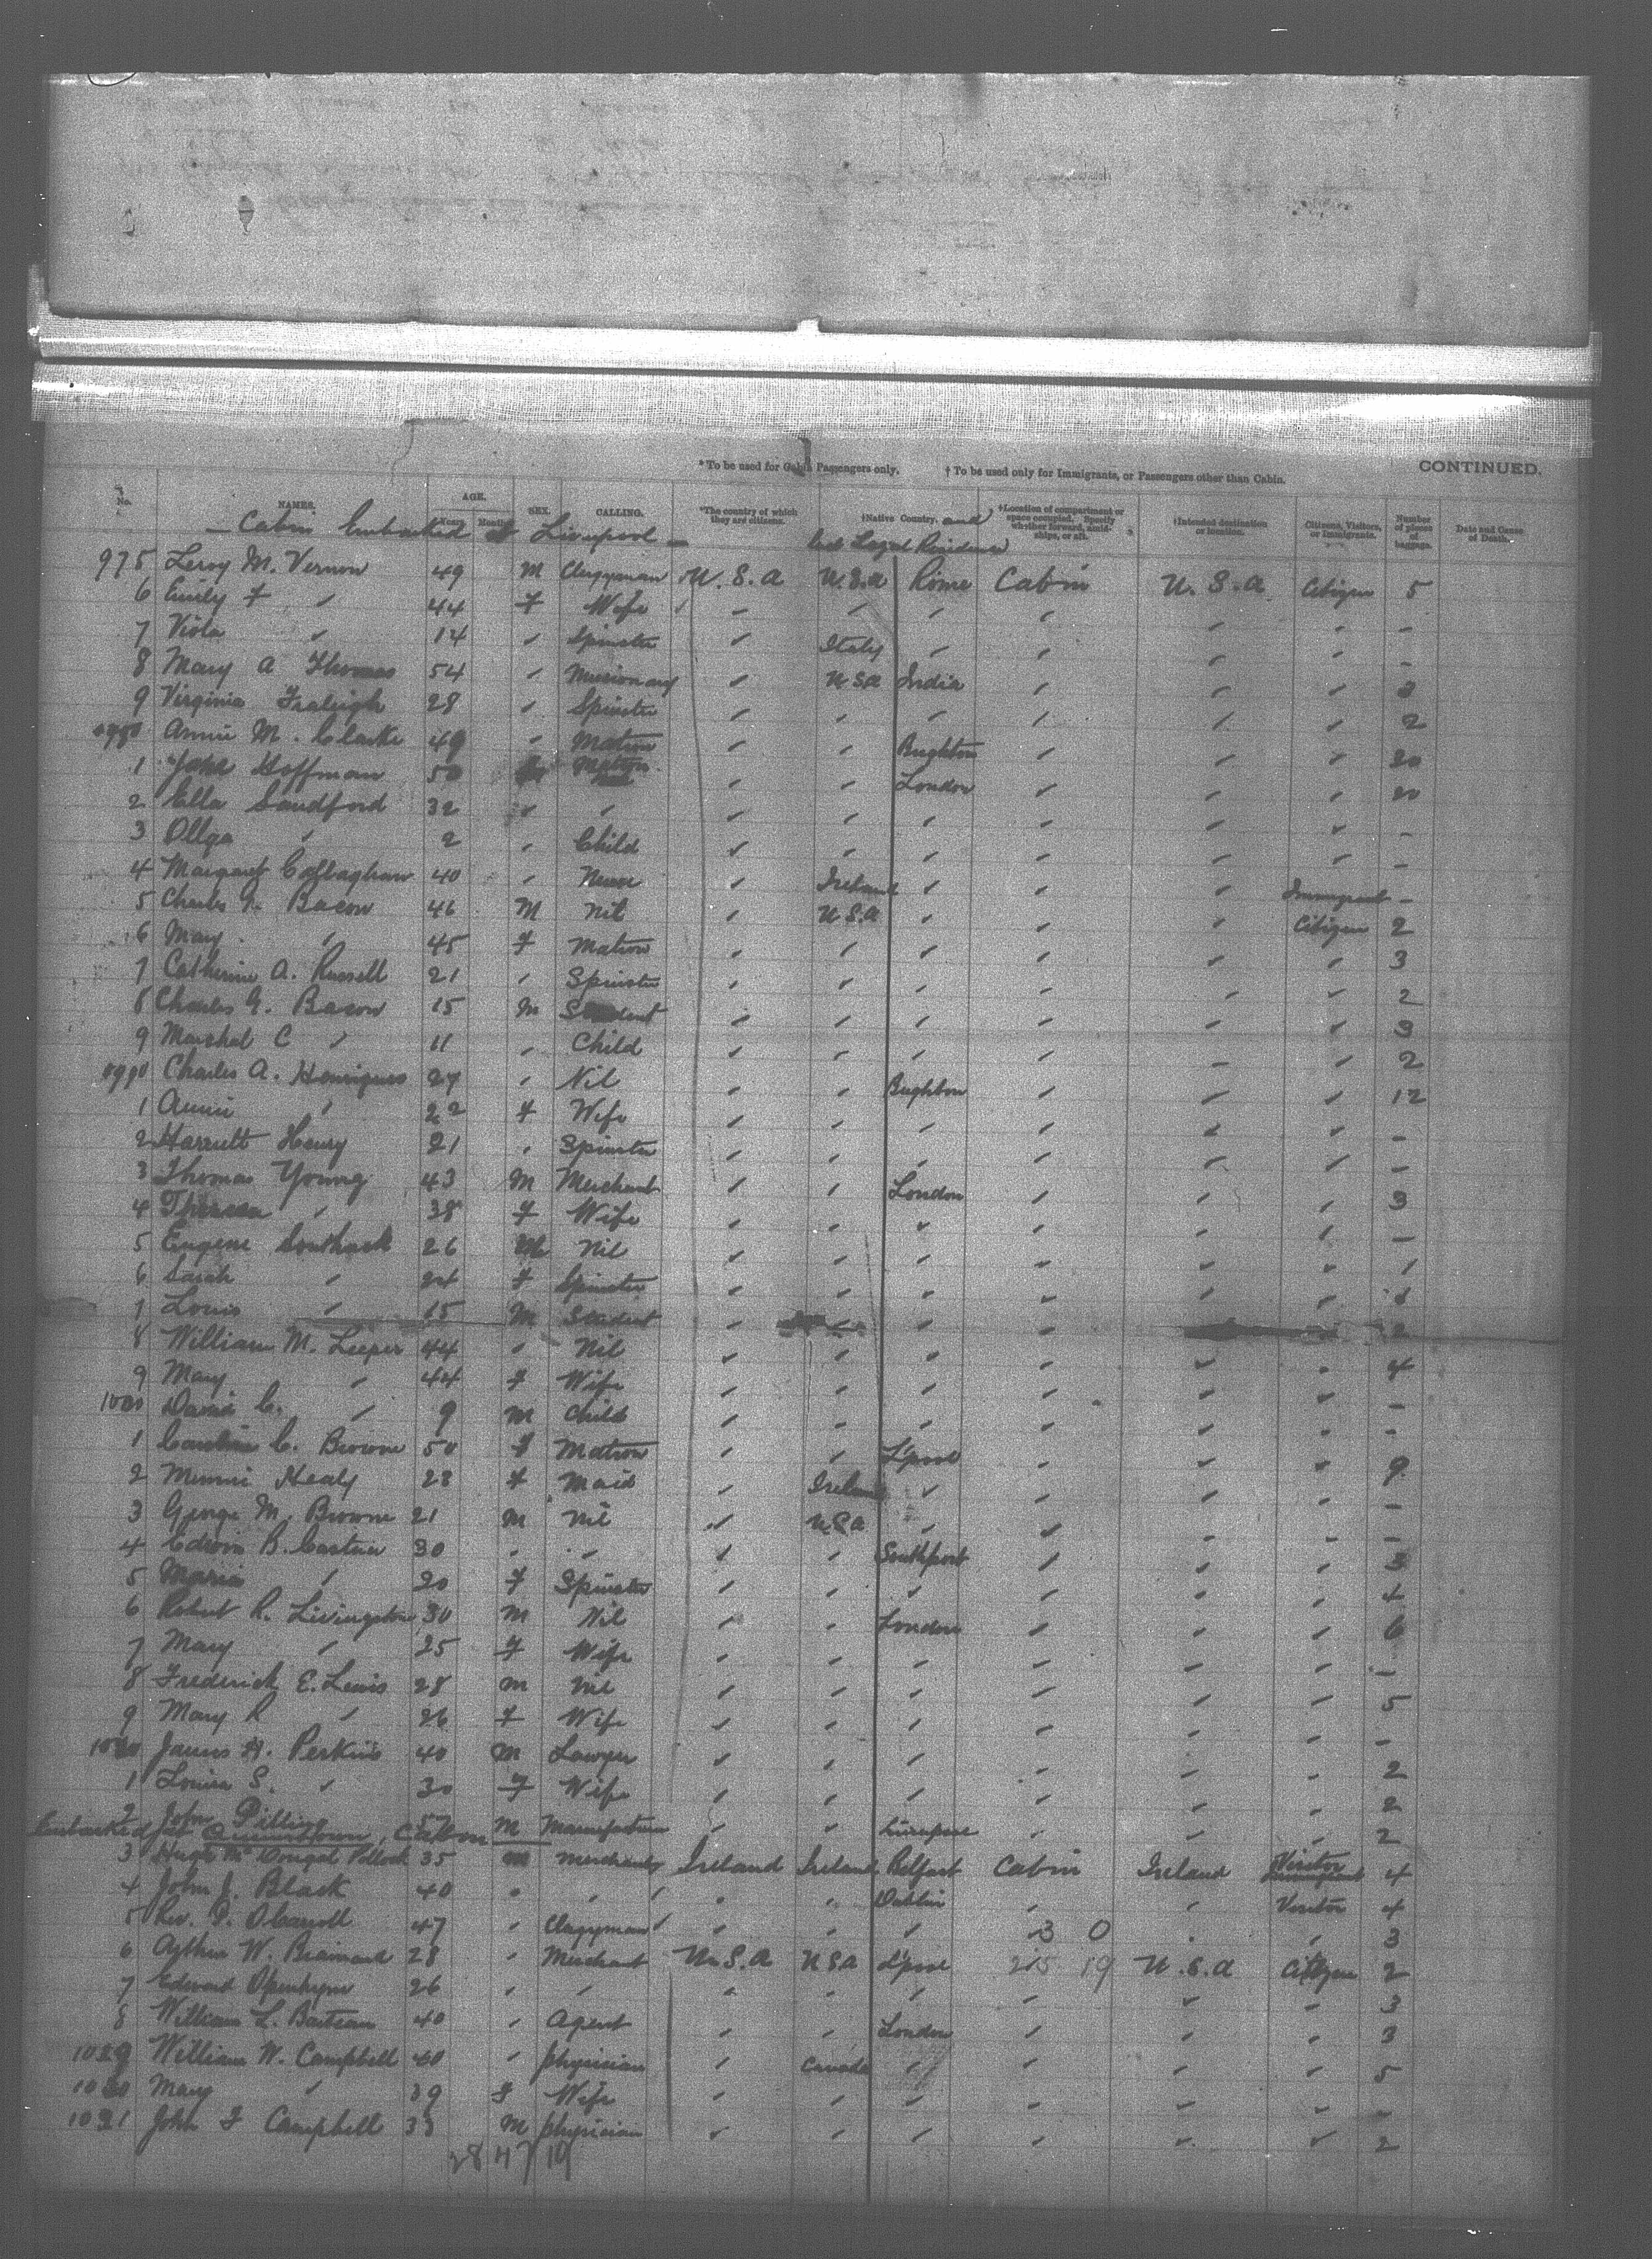 * To be used for Cabin Passengers only. † To be used only for Immigrants, or Passengers other than Cabin. CONTINUED.
No. NAMES. AGE. Years Months SEX. CALLING. *The country of which they are citizens. †Native Country. and last Legal Residence †Location of compartment or space occupied. Specify whether forward, amidships, or aft. †Intended destination or location. Citizens, Visitors, or Immigrants. Number of pieces of baggage. Date and Cause of Death.
— Cabin Embarked at Liverpool —
975 Leroy M. Vernon 49 M Clergyman U.S.A U.S.A Rome Cabin U.S.A Citizen 5
6 Emily F " 44 F Wife " " " " " " -
7 Viola " 14 " Spinster " Italy " " " " -
8 Mary A Thomas 54 " Missionary " U S A India " " "
9 Virginia Fraleigh 28 " Spinster " " " " " " 2
980 Annie M. Clarke 49 " Matron " " Brighton " " " 20
1 Jane Hoffman 50 Matron " " London " " " 20
2 Ella Sandford 32 " " " " " " " " -
3 Ollga " 2 " Child " " " " " " -
4 Margaret Callaghan 40 " Nurse " Ireland " " " Immigrant -
5 Charles G. Bacon 46 M Nil " U.S.A " " " Citizen 2
6 May " 45 F Matron " " " " " " 3
7 Catherine A. Russell 21 " Spinster " " " " " " 2
8 Charles G. Bacon 15 M Student " " " " " " 3
9 Marshal C " 11 " Child " " " " " " 2
990 Charles A. Henriques 27 " Nil " " Brighton " " " 12
1 Annie " 22 F Wife " " " " " " -
2 Harriett Henry 21 " Spinster " " " " " " -
3 Thomas Young 43 M Merchant " " London " " " 3
4 Theresa " 38 F Wife " " " " " " -
5 Eugene Southack 26 M Nil " " " " " " 1
6 Sarah " 24 F Spinster " " " " " " 1
7 Louis " 15 M Student " " " " " " 2
8 William M. Leeper 44 " Nil " " " " " " 4
9 Mary " 44 F Wife " " " " " " -
1000 David C. " 9 M Child " " " " " " -
1 Caroline C. Browne 50 F Matron " " L'pool " " " 9
2 Minnie Healy 23 F Maid " Ireland " " " " -
3 George M. Browne 21 M Nil " U S A " " " " -
4 Edwin B. 30 " " " " Southport " " " 3
5 Maria " 20 F Spinster " " " " " " 4
6 Robert R. Livingston 30 M Nil " " London " " " 6
7 Mary " 25 F Wife " " " " " " -
8 Frederick E. Lewis 28 M Nil " " " " " " 5
9 Mary R " 26 F Wife " " " " " " -
James H. Perkins 40 M Lawyer " " " " " " 2
1 Louisa S. " 30 F Wife " " " " " " 2
2 John Pilling 57 M Manufacturer " " Liverpool " " " 2
Embarked at Queenstown, Cabin
3 Hugh McDougal Pollock 35 M Merchant Ireland Ireland Belfast Cabin Ireland Visitor 4
4 John J. Black 40 " " " " Dublin " " Visitor 4
5 Rev. P. O'Carroll 47 " Clergyman " " " 3 0 " " 3
6 Arthur W. Brainard 28 " Merchant U.S.A U S A L'pool 215 19 U.S.A Citizen 2
7 Edward 26 " " " " " " " " 3
8 William L. Bateau 40 " Agent " " London " " " 3
William W. Campbell 40 " physician " Canada " " " " 5
Mary " 39 F Wife " " " " " " -
John F Campbell 33 M physician " " " " " " 2